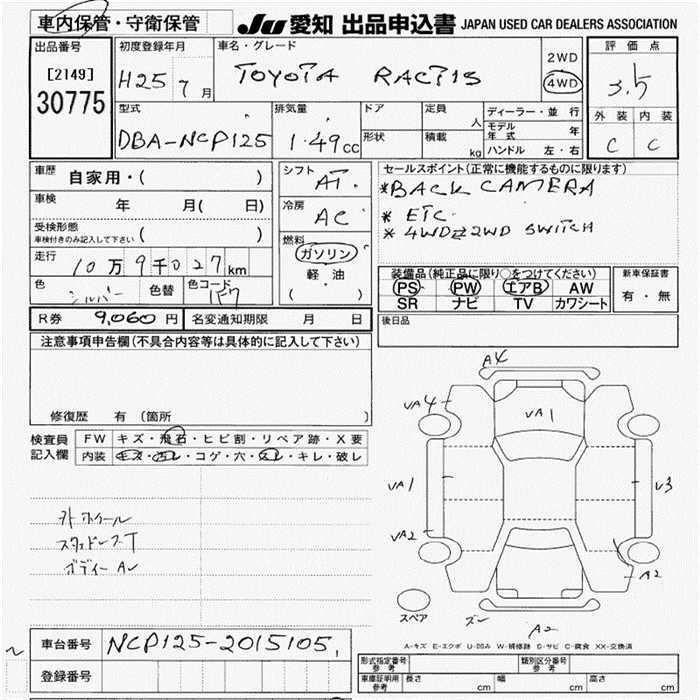 車内保管・守衛保管
JU 愛知 出品申込書 JAPAN USED CAR DEALERS ASSOCIATION
出品番号
[2149]
30775
初度登録年月
H25 7 月
車名・グレード
TOYOTA RACTIS
2WD
4WD
評価点
3.5
外装 内装
C C
型式
DBA-NCP125
排気量
1.49cc
ドア
形状
定員 人
積載 kg
ディーラー・並行
モデル年式 年
ハンドル 左・右
車歴 自家用・( )
車検 年 月( 日)
受検形態
車検付きのみ記入して下さい ( )
走行 10万9千027km
色 シルバー 色替 色コード 1E7
シフト AT.
冷房 AC
燃料
ガソリン
軽油
( )
セールスポイント(正常に機能するものに限ります)
*BACK CAMERA
* ETC
* 4WD⇄2WD SWITCH
装備品(純正品に限り○をつけてください)
PS PW エアB AW
SR ナビ TV カワシート
新車保証書
有・無
R券 9,060円 名変通知期限 月 日
後日品
注意事項申告欄(不具合内容等は具体的に記入して下さい)
修復歴 有(箇所 )
検査員
記入欄
FW キズ・飛石・ヒビ割・リペア跡・X要
内装 キズ・汚レ・コゲ・穴・スレ・キレ・破レ
外ホイール
スタッドレスT
ボディー AU
A4
UA4
UA1
UA1
U3
UA2
A2
スペア
ズレ
A2
A-キズ E-エクボ U-凹み W-補修跡 S-サビ C-腐食 XX-交換済
車台番号 NCP125-2015105
登録番号
形式指定番号
参考
類別区分番号
参考
車庫証明用
参考
長さ cm 幅 cm 高さ cm